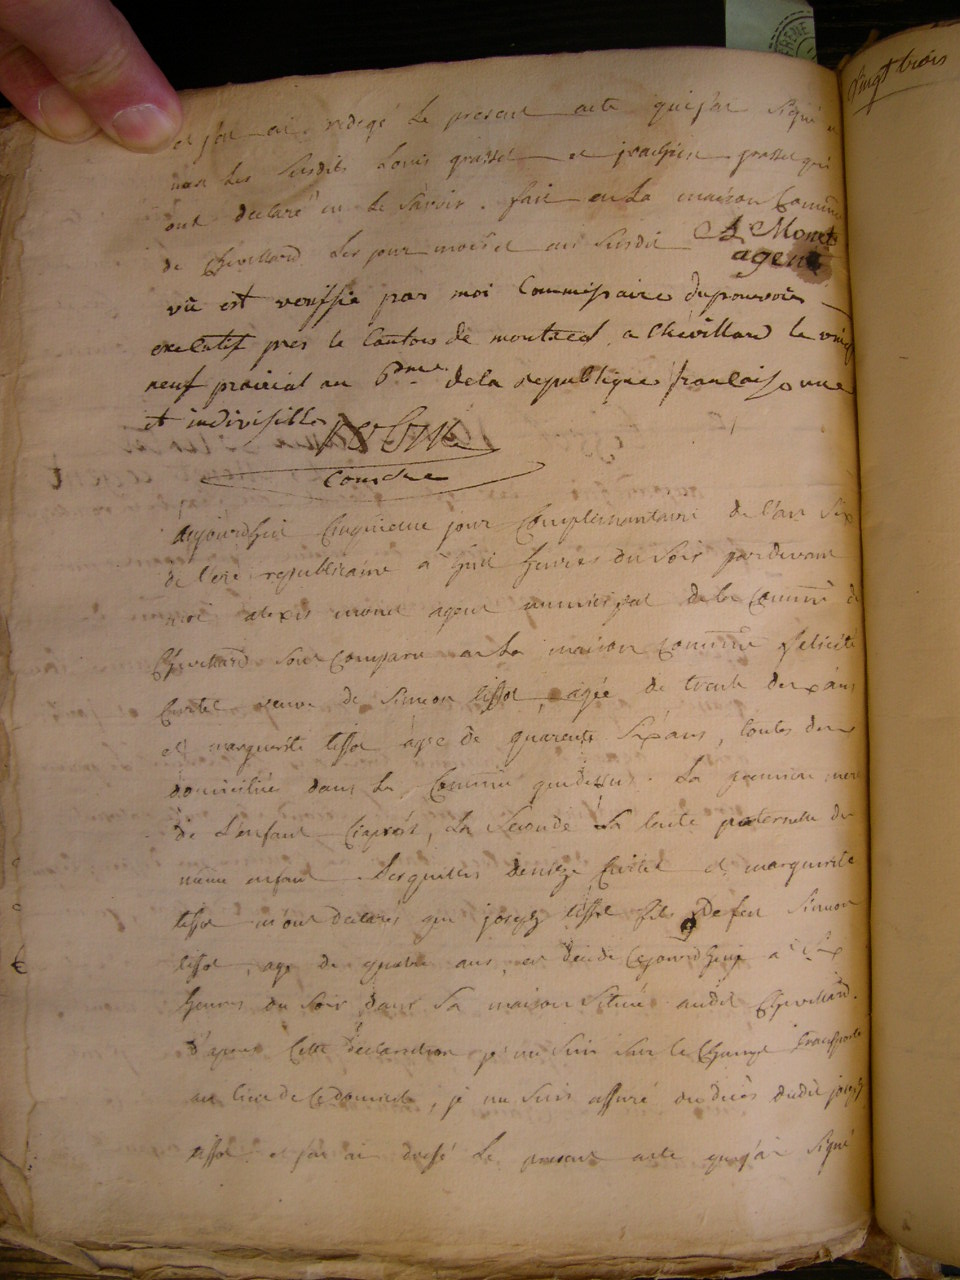 vingt trois
et j'en ai redigé le present acte que j'ai signé et
non les susdits Louis grasset et joachim grasset qui
ont declaré ne le savoir. fait en la maison Commune
de Chevillard les jour mois et an susdit A Monet
agent
vü est veriffié par moi Commissaire du pouvoir
executif pres le Canton de montreal, a Chevillard le vingt
neuf prairial an 6me de la republique francaise une
et indivisible
aujourdhui Cinquieme jour Complementaire de l'an six
de l'ere republicaine a huit heures du soir pardevant
moi alexis monet agent municipal de la Commune de
Chevillard sont comparu en la maison Commune felicité
veuve de Simeon tissot, agée de trente deux ans
et marguerite tissot agée de quarente six ans, toutes deux
domicilié dans la Commune que dessu. la premiere mere
de l'enfant Ciaprés, la seconde la tante paternelle du
même enfant. lesquelles et marguerite
tissot m'ont declarés que joseph tissot fils de feu Simeon
tissot, age de quatre ans, es decede Cejourdhuit a six
heures du soir dans sa maison située audit Chevillard.
d'apres Cette declaration je me suis sur le Champ transporté
au lieu de Ce domicile, je me suis assuré du deces dudit joseph
tissot et j'en ai dressé le present acte que j'ai signé